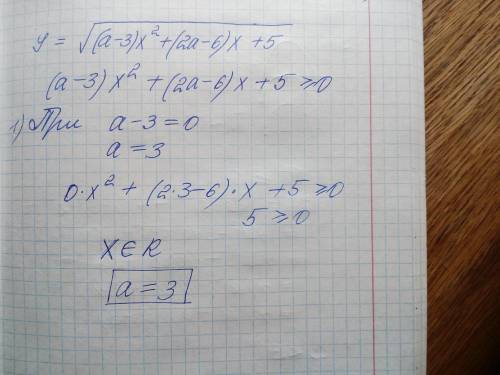 y = √((a-3)x²+(2a-6)x+5
(a-3)x²+(2a-6)x+5≥0
1) При a-3=0
a=3
0·x²+(2·3-6)·x+5≥0
5≥0
X∈R
a=3